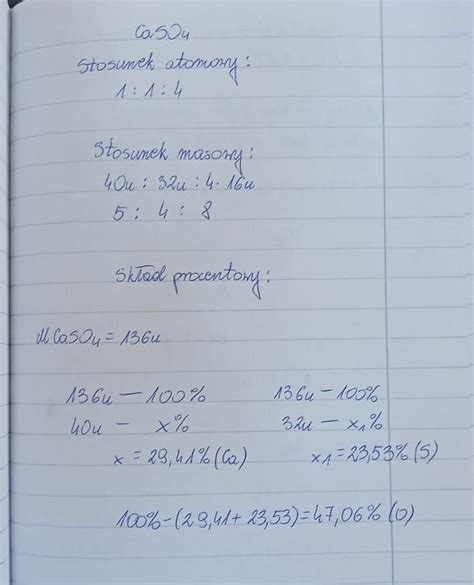 CaSO4
Stosunek atomowy:
1 : 1 : 4
Stosunek masowy:
40u : 32u : 4·16u
5 : 4 : 8
Skład procentowy:
MCaSO4 = 136u
136u — 100%
40u — x%
x = 29,41% (Ca)
136u — 100%
32u — x1%
x1 = 23,53% (S)
100% - (29,41 + 23,53) = 47,06% (O)